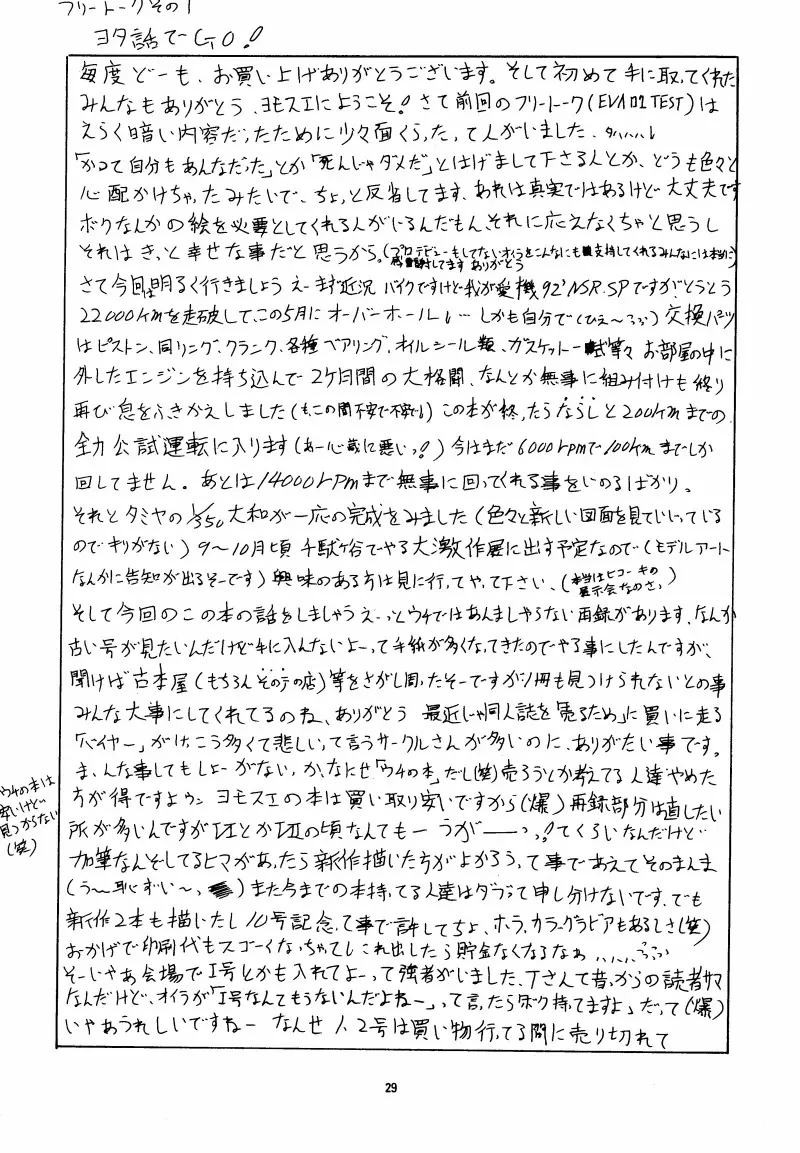 フリートークその1
ヨタ話でGO!
毎度どーも、お買い上げありがとうございます。そして初めて手に取ってくれた
みんなもありがとう、ヨモスエにようこそ!さて前回のフリートーク(EVA 02 TEST)は
えらく暗い内容だったために少々面くらったって人がいました、タハハハ…
「かつて自分もあんなだった」とか「死んじゃダメだ」とはげまして下さる人とか、どうも色々と
心配かけちゃったみたいで、ちょっと反省してます、あれは真実ではあるけど大丈夫です
ボクなんかの絵を必要としてくれる人がいるんだもん、それに応えなくちゃと思うし
それはきっと幸せな事だと思うから。(プロデビューもしてないオイラをこんなにも支持してくれるみんなには本当に
感謝してます ありがとう
さて今回は明るく行きましょう えーまず近況 バイクですけど我が愛機92'NSR.SPですがとうとう
22000Kmを走破して、この5月にオーバーホールし… しかも自分で(ひぇ〜ふふ)交換パーツ
はピストン、同リング、クランク、各種ベアリング、オイルシール類、ガスケット一式等々 お部屋の中に
外したエンジンを持ち込んで2ケ月間の大格闘、なんとか無事に組み付けも終り
再び息をふきかえしました(もぅこの間不安で不安で)この本が終ったらならしと200Kmまでの
全力公試運転に入ります(あー心蔵に悪いっ!)今はまだ6000rpmで100Kmまでしか
回してません。あとは14000rpmまで無事に回ってくれる事をいのるばかり。
それとタミヤの1/350大和が一応の完成をみました(色々と新しい図面を見ていじっている
のでキリがない)9〜10月頃千駄ヶ谷でやる大激作展に出す予定なので(モデルアート
なんかに告知が出るそーです)興味のある方は見に行ってやって下さい、(本当はヒコーキの
展示会なのさっ)
そして今回のこの本の話をしましゃう えーっとウチではあんましやらない再録があります、なんか
古い号が見たいんだけど手に入んないよーって手紙が多くなってきたのでやる事にしたんですが、
聞けば古本屋(もちろんその手の店)等をさがし周ったそーですが1冊も見つけられないとの事
みんな大事にしてくれてるのね、ありがとう 最近じゃ同人誌を「売るため」に買いに走る
「バイヤー」がけっこう多くて悲しいって言うサークルさんが多いのに、ありがたい事です。
ま、んな事してもしょーがないか、なにせ「ウチの本」だし(笑)売ろうとか考えてる人達やめた
方が得ですよゥン ヨモスエの本は買い取り安いですから(爆)再録部分は直したい
所が多いんですがⅠとかⅡの頃なんてもーうがーーっ!てくらいなんだけど
加筆なんぞしてるヒマがあったら新作描いたらがよかろうって事であえてそのまんま
(う〜恥ずい〜)また今までの本持ってる人達はダブって申し分けないです、でも
新作2本も描いたし10号記念って事で許してちょ、ホラ、カラーグラビアもあるしさ(笑)
おかげで印刷代もスゴーくなっちゃてしこれ出したら貯金なくなるなぁ……ふふ
そーいやあ会場でⅠ号とかも入れてよーって強者がいました、Tさんて昔からの読者サマ
なんだけど、オイラが「Ⅰ号なんてもうないんだよねー」って言ったら「ボク持てますよ」だって(爆)
いやあうれしいですねー なんせ1、2号は買い物行ってる間に売り切れて
ウチの本は
安いけど
見つからない
(笑)
29